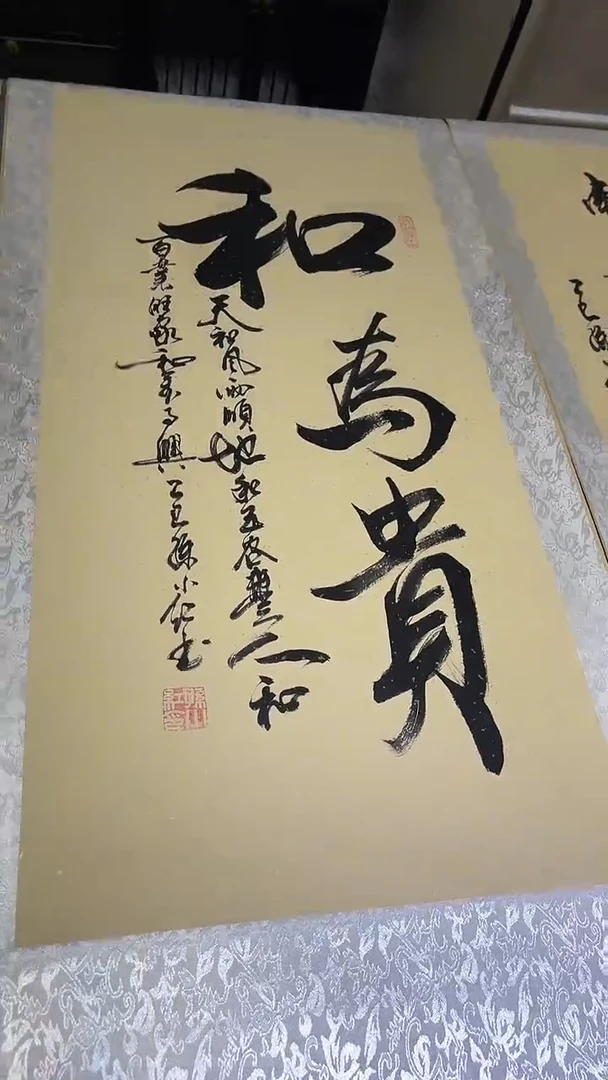 和為貴
天和風雨順地和五谷豐人和
百業旺家和万事興 孫小 书